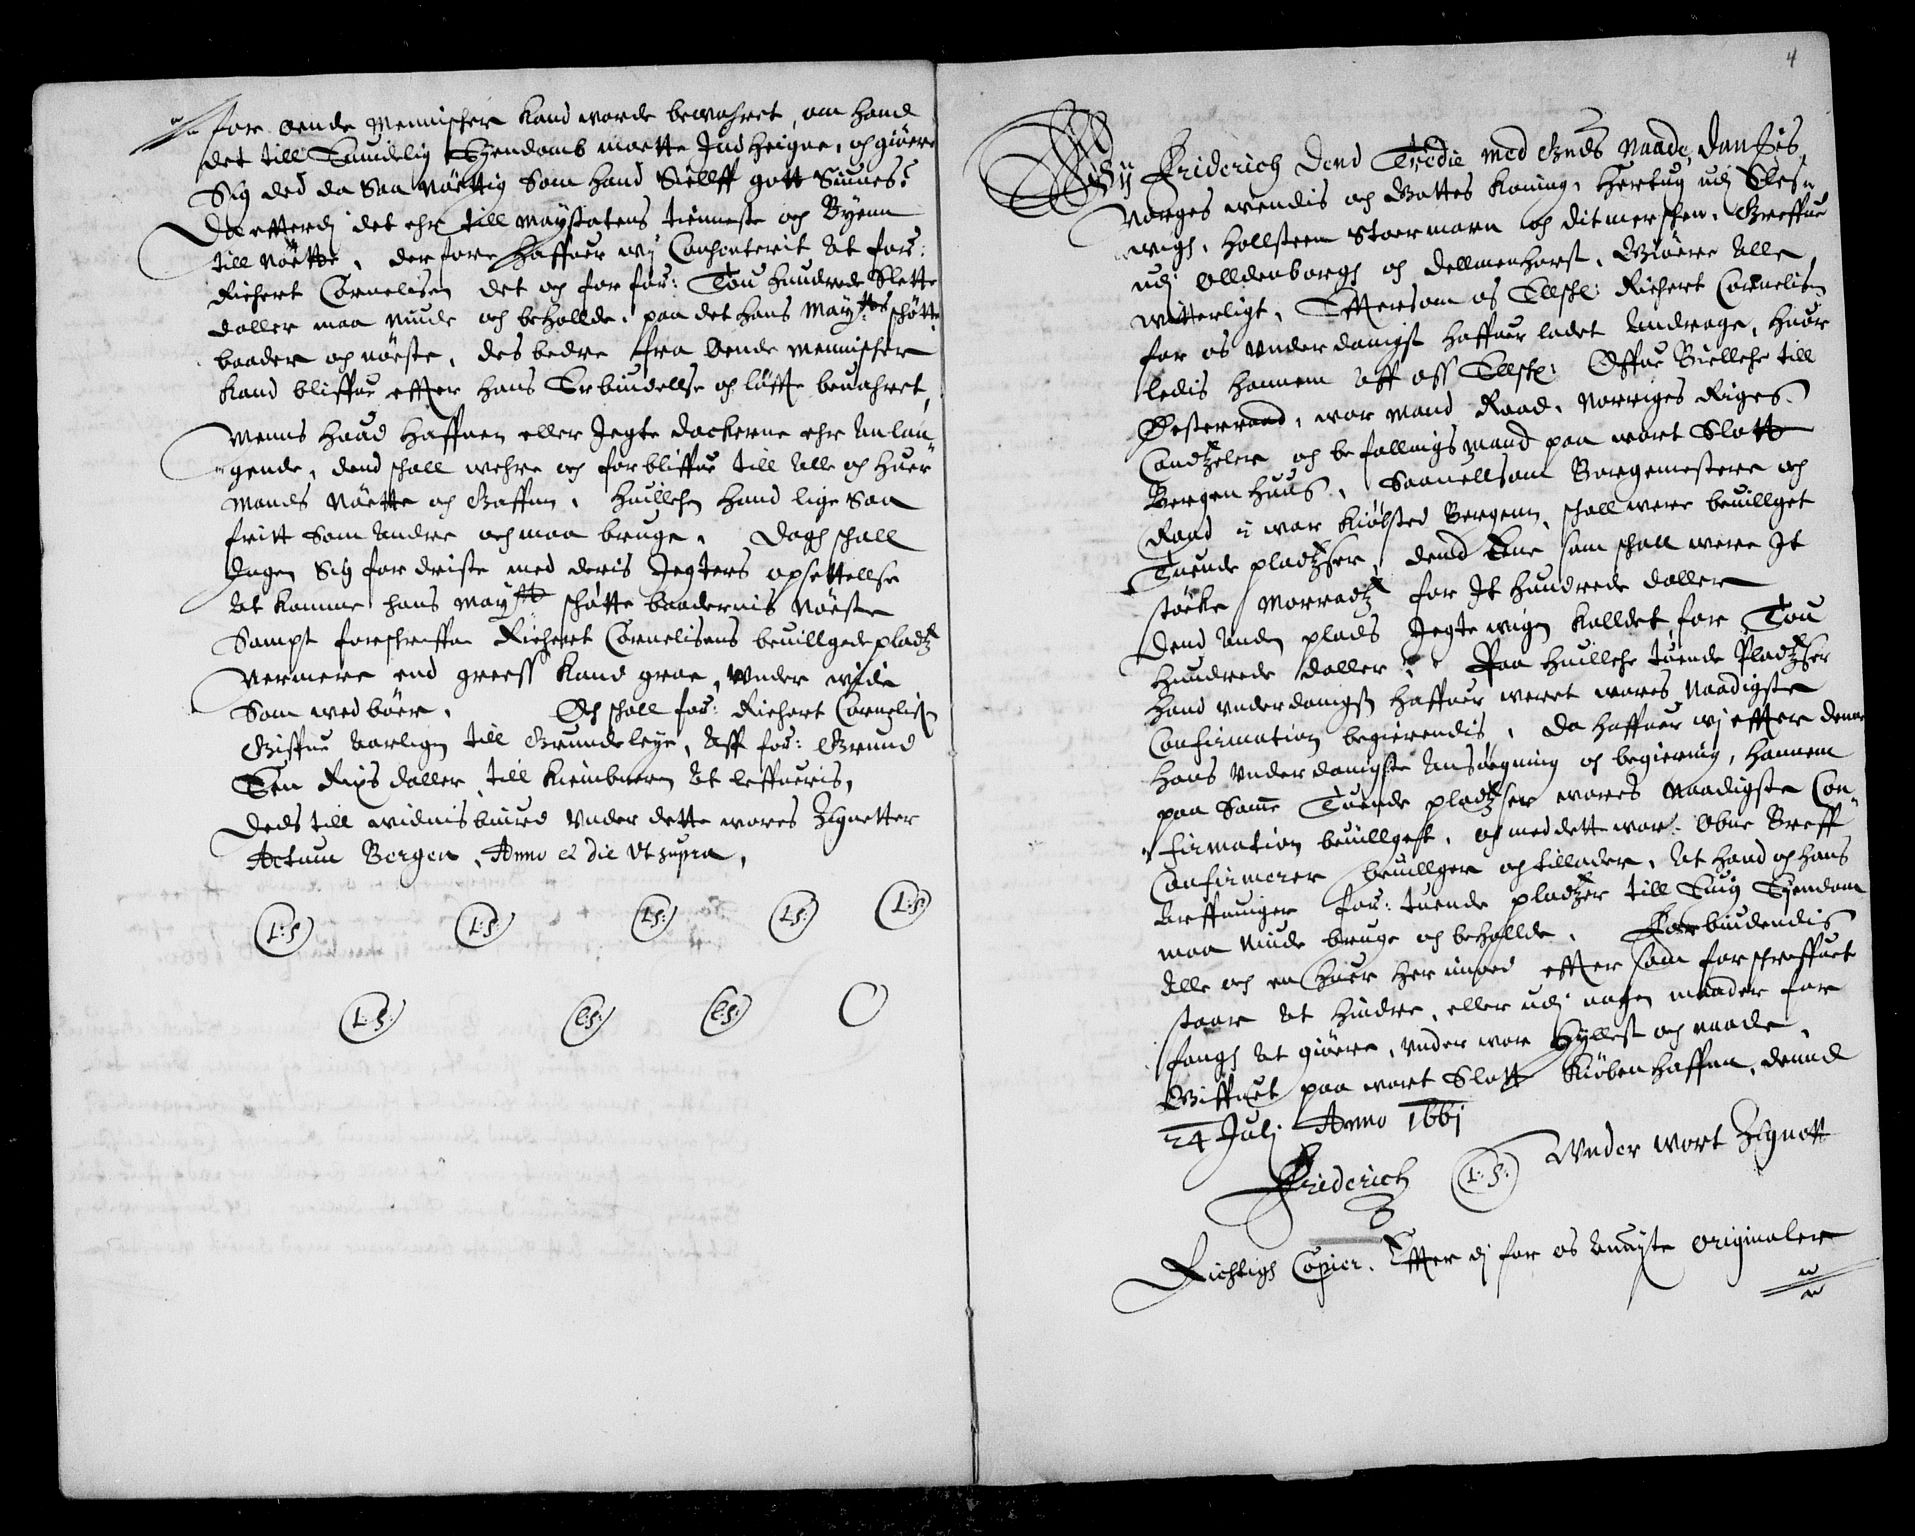 for onde Mennischer kand worde bewahret, om hand
det till Euindelig Eyendomb motte Indheigne, och giøre
Sig ded da saa nøttig som hand Sielff gott Siunes?
Da effterdj det ehr till Mayestatens tienneste och Byenn
till nøtte, derfore haffuer wj Conßenterit at for:
Richert Cornelisen det och for for: Tou Hundrede Slette
daller maa niude och beholde, paa det hans Maytts schøtte
baader och nøste, des bedre fra onde Mennischer
kand bliffue effter hans Erbiudellse och løffte beuahret,
Menns huad haffnen eller Jegte dockerne ehr anlan„
„gende, dend schall wehre och forbliffue till alle och huer
mands nøtte och gaffn, huilchen hand lige saa
fritt som andre och maa bruge. Dogh schall
Ingen Sig fordriste med deris Jegters opsettellse
at komme hans Maytts schøtte baadernis nøste
sampt forschreffne Richert Cornelisens beuillgede pladtz
nermere end greess kand groe, under wide
som wedbør. Och schall for: Richert Cornelisen
Giffue aarligen till Grundeleye, aff for: Grund
Een Rixdaller, till Kiembneren at leffueris,
Dedstill widnisbiurd under dette wores Zignetter
Actum Bergen, Anno et die ut supra,
L:S: L:S: L:S: L:S: L:S:
L:S: L:S: L:S:
4
Wij Friderich dend Tredie med Guds Naade, Danßis
Norges Wendis och Gottes koning, Hertug udj Sles„
wigh, Hollsteen Stoermarn och Ditmerschen, Greffue
udj Olldenborgh och Dellmenhorst, Giøre Alle
witterligt, Effersom os Elschl: Richert Cornelisen
for os underdanigst haffuer ladet andrage, huor
ledis hannem aff oss Elschl: Offue Bielche till
Østerraad, wor Mand Raad, Norriges Riges
Candtzeler och befallningsmand paa wort Slott
Bergenhuus, saauelsom Borgemestere och
Raad i wor kiøbsted Bergenn, schall were beuillget
Tuende pladtzser, dend Ene som schall were It
støcke Morradtz for It hundrede daller
dend anden plads Jegtewigen kalldet for Tou
hundrede daller? Paa huilche tuende Pladtzser
hand underdanigst haffuer weret wores Naadigste
Confirmation begierendis, da haffuer wj effter denne
hans underdanigste ansøgning och begiering, hannem
paa samme Tuende pladtzser wores Naadigste Con„
„firmation beuillget, och med dette wort obne Breff
Confirmerer beuillger och tillader, at hand och hans
Arffuinger for: tuende pladtzer till Euig Eyendom
maa niude bruge och beholde. Forbiudendis
alle och en huer her imod effter som forschreffuet
staar at hindre, eller udj nogen maader for
fangh at giøre, under wor hyllest och naade,
Giffuet paa wort Slott Kiøbenhaffn, dennd
24 Julj Anno 1661
Under wort Zignett
Friderich L:S:
Richtigh Copier, Effter dj for os anuiste originaler